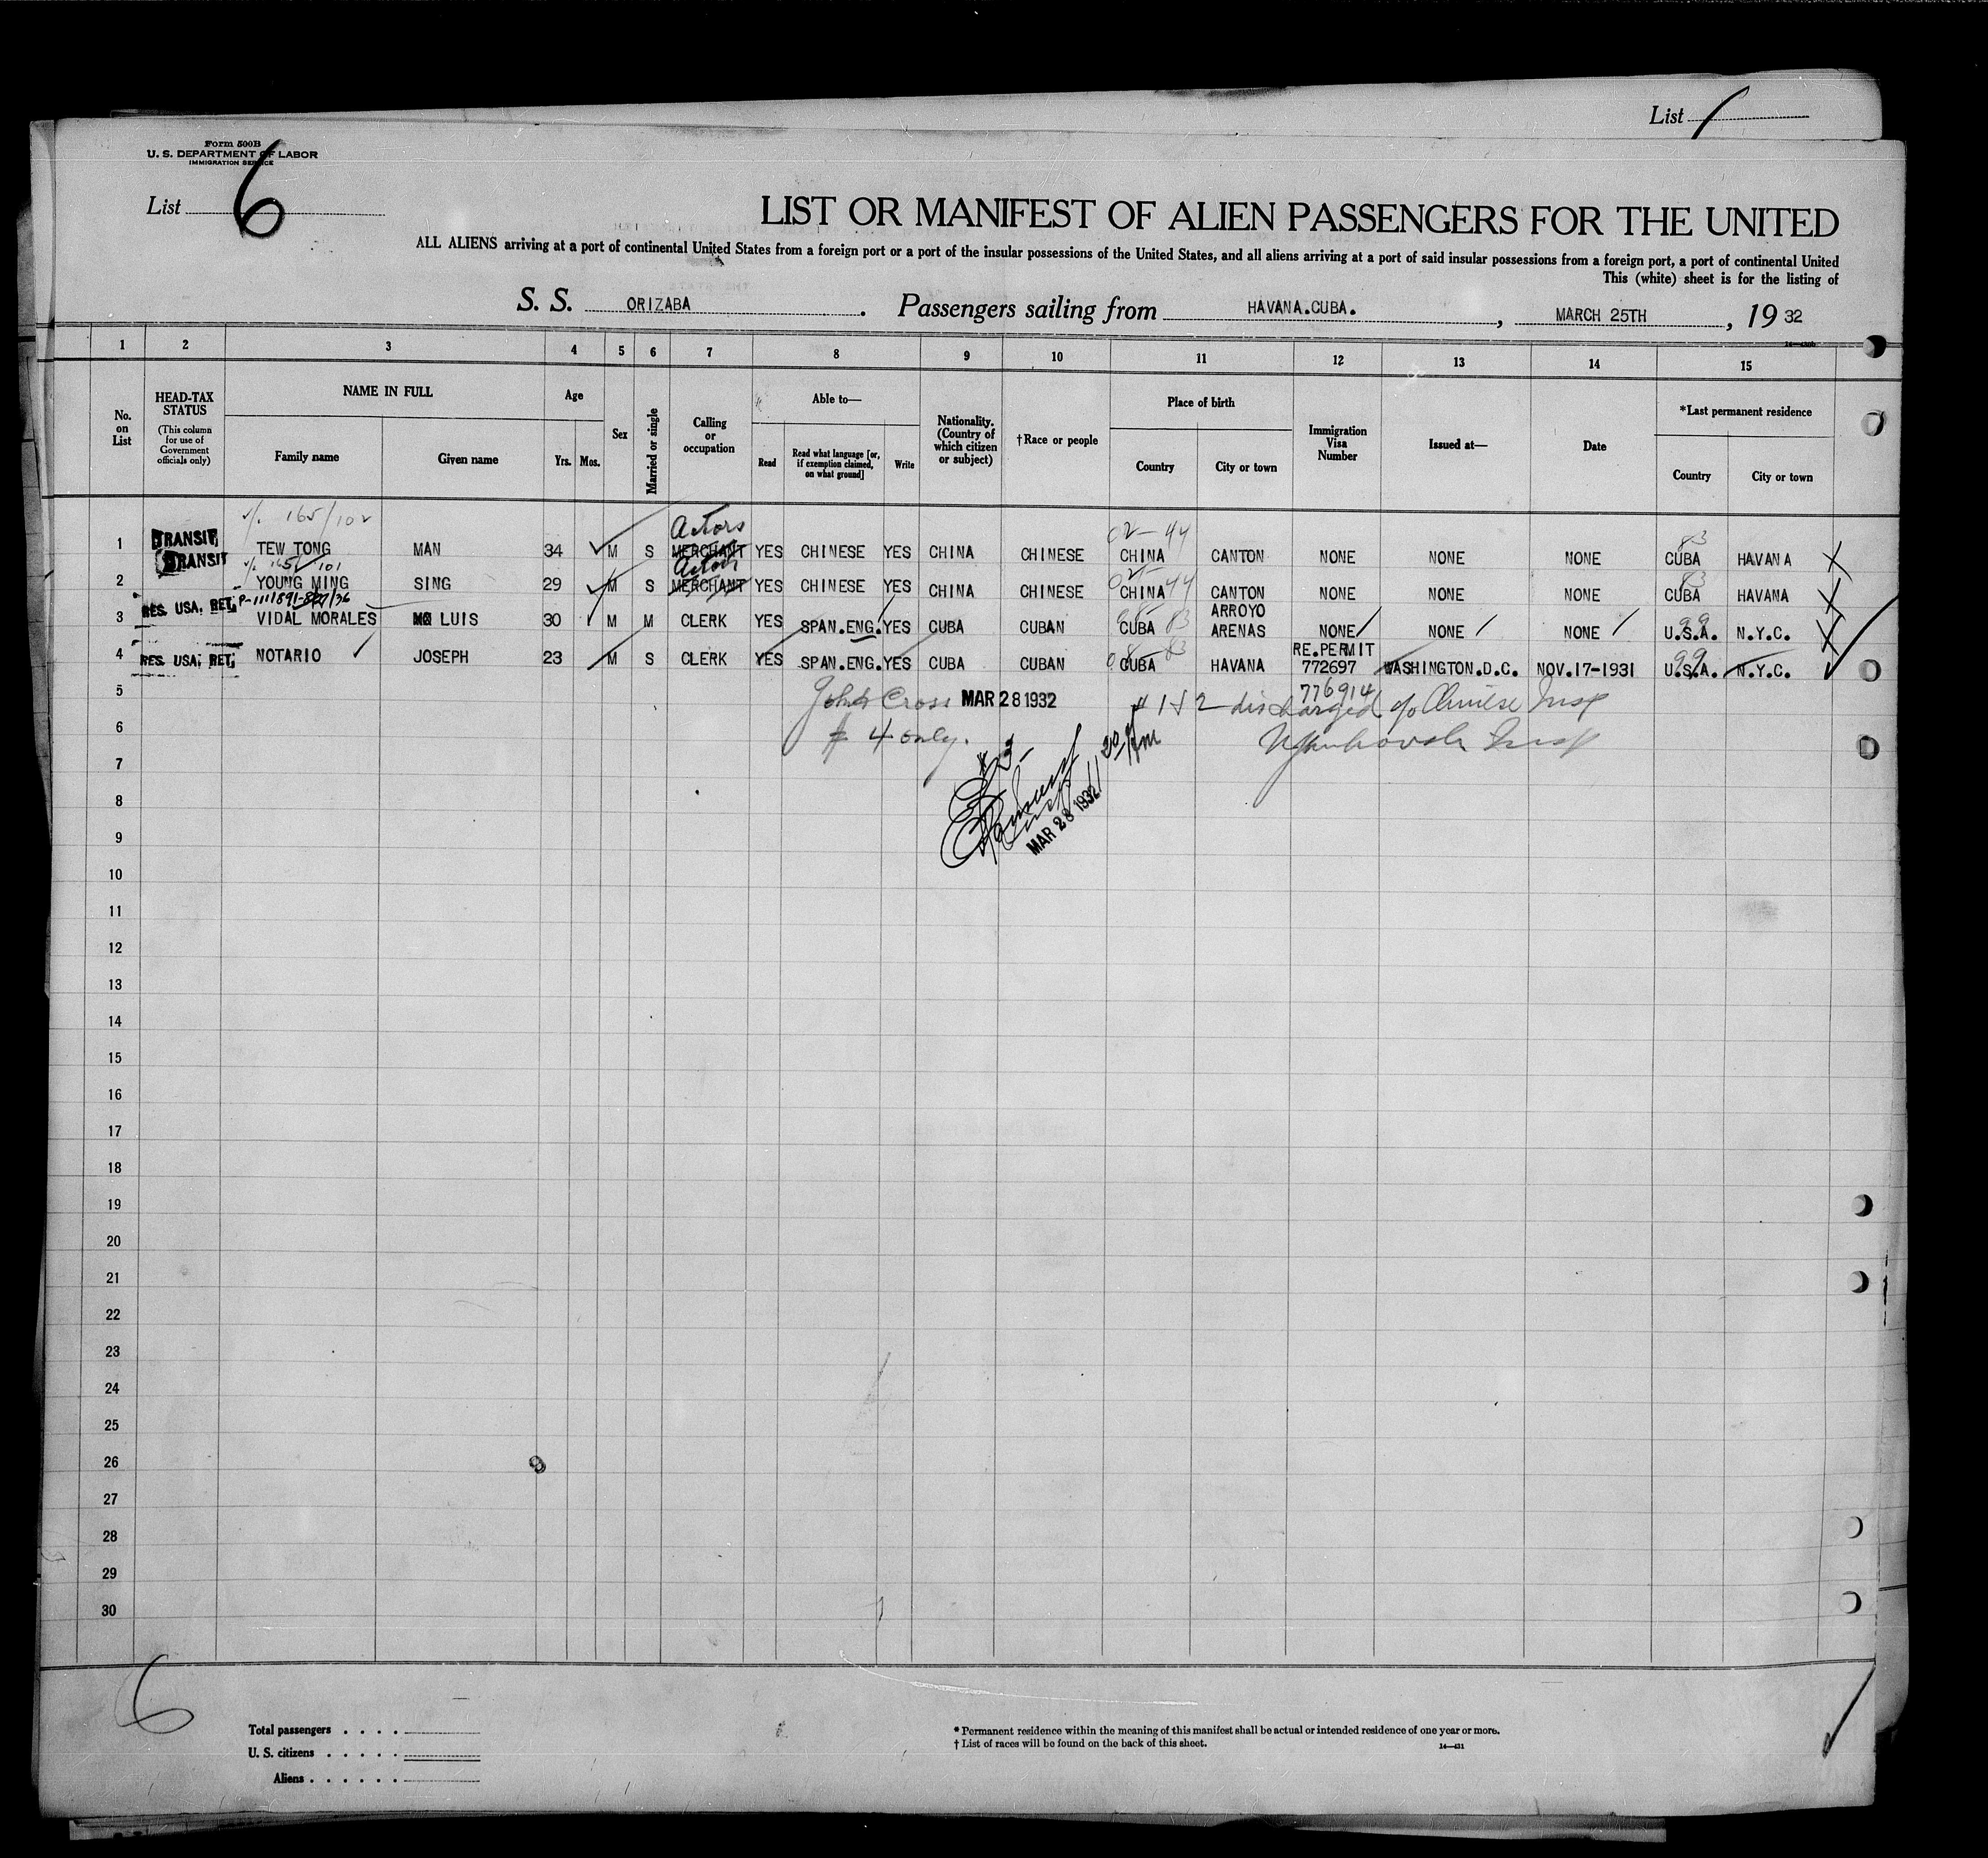 List /
Form 500B
U. S. DEPARTMENT OF LABOR
IMMIGRATION SERVICE
List 6
LIST OR MANIFEST OF ALIEN PASSENGERS FOR THE UNITED
ALL ALIENS arriving at a port of continental United States from a foreign port or a port of the insular possessions of the United States, and all aliens arriving at a port of said insular possessions from a foreign port, a port of continental United
This (white) sheet is for the listing of
S. S. ORIZABA. Passengers sailing from HAVANA.CUBA., MARCH 25TH, 19 32
1 2 3 4 5 6 7 8 9 10 11 12 13 14 15
No. on List
HEAD-TAX STATUS (This column for use of Government officials only)
NAME IN FULL
Family name Given name
Age
Yrs. Mos.
Sex
Married or single
Calling or occupation
Able to—
Read Read what language [or, if exemption claimed, on what ground] Write
Nationality. (Country of which citizen or subject)
†Race or people
Place of birth
Country City or town
Immigration Visa Number
Issued at—
Date
*Last permanent residence
Country City or town
165/102 Actors 02-44 83
1 TRANSIT TEW TONG MAN 34 M S MERCHANT YES CHINESE YES CHINA CHINESE CHINA CANTON NONE NONE NONE CUBA HAVANA
TRANSIT 165/101 Actors 83
2 YOUNG MING SING 29 M S MERCHANT YES CHINESE YES CHINA CHINESE CHINA 44 CANTON NONE NONE NONE CUBA HAVANA
3 RES. USA. RET. VIDAL MORALES LUIS 30 M M CLERK YES SPAN.ENG. YES CUBA CUBAN CUBA 83 ARROYO ARENAS NONE NONE NONE U.S.A. N.Y.C.
4 RES. USA. RET. NOTARIO JOSEPH 23 M S CLERK YES SPAN.ENG. YES CUBA CUBAN CUBA HAVANA RE.PERMIT 772697 WASHINGTON.D.C. NOV.17-1931 U.S.A. N.Y.C.
776914
5 Cross MAR 28 1932 # 1 & 2 discharged Chinese Insp
6 # 4 only. Insp
# 3-
7
8
MAR 28 1932
9
10
11
12
13
14
15
16
17
18
19
20
21
22
23
24
25
26
27
28
29
30
6
Total passengers . . . .
U. S. citizens . . . . .
Aliens . . . . . .
* Permanent residence within the meaning of this manifest shall be actual or intended residence of one year or more.
† List of races will be found on the back of this sheet.
14—431